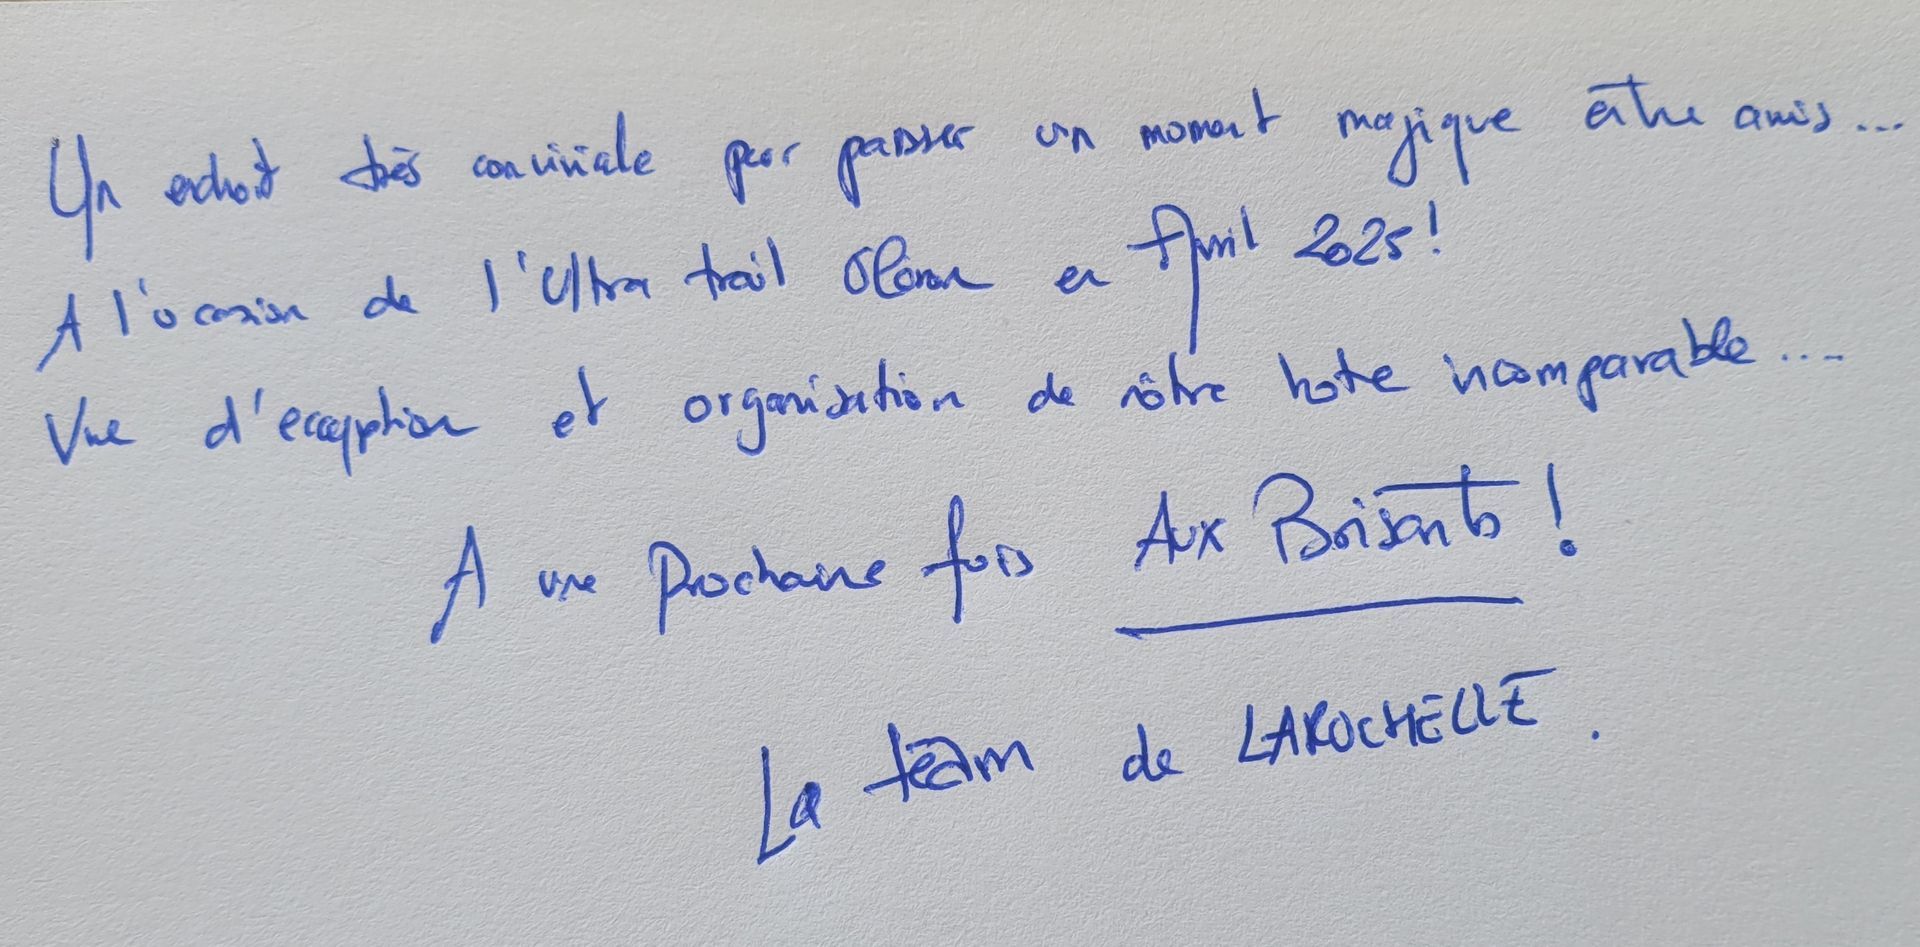 Un endroit très conviviale pour passer un moment magique entre amis...
A l'occasion de l'Ultra trail Oléron en Avril 2025!
Vue d'exception et organisation de nôtre hote incomparable....
A une Prochaine fois Aux Brisants!
La team de LAROCHELLE.